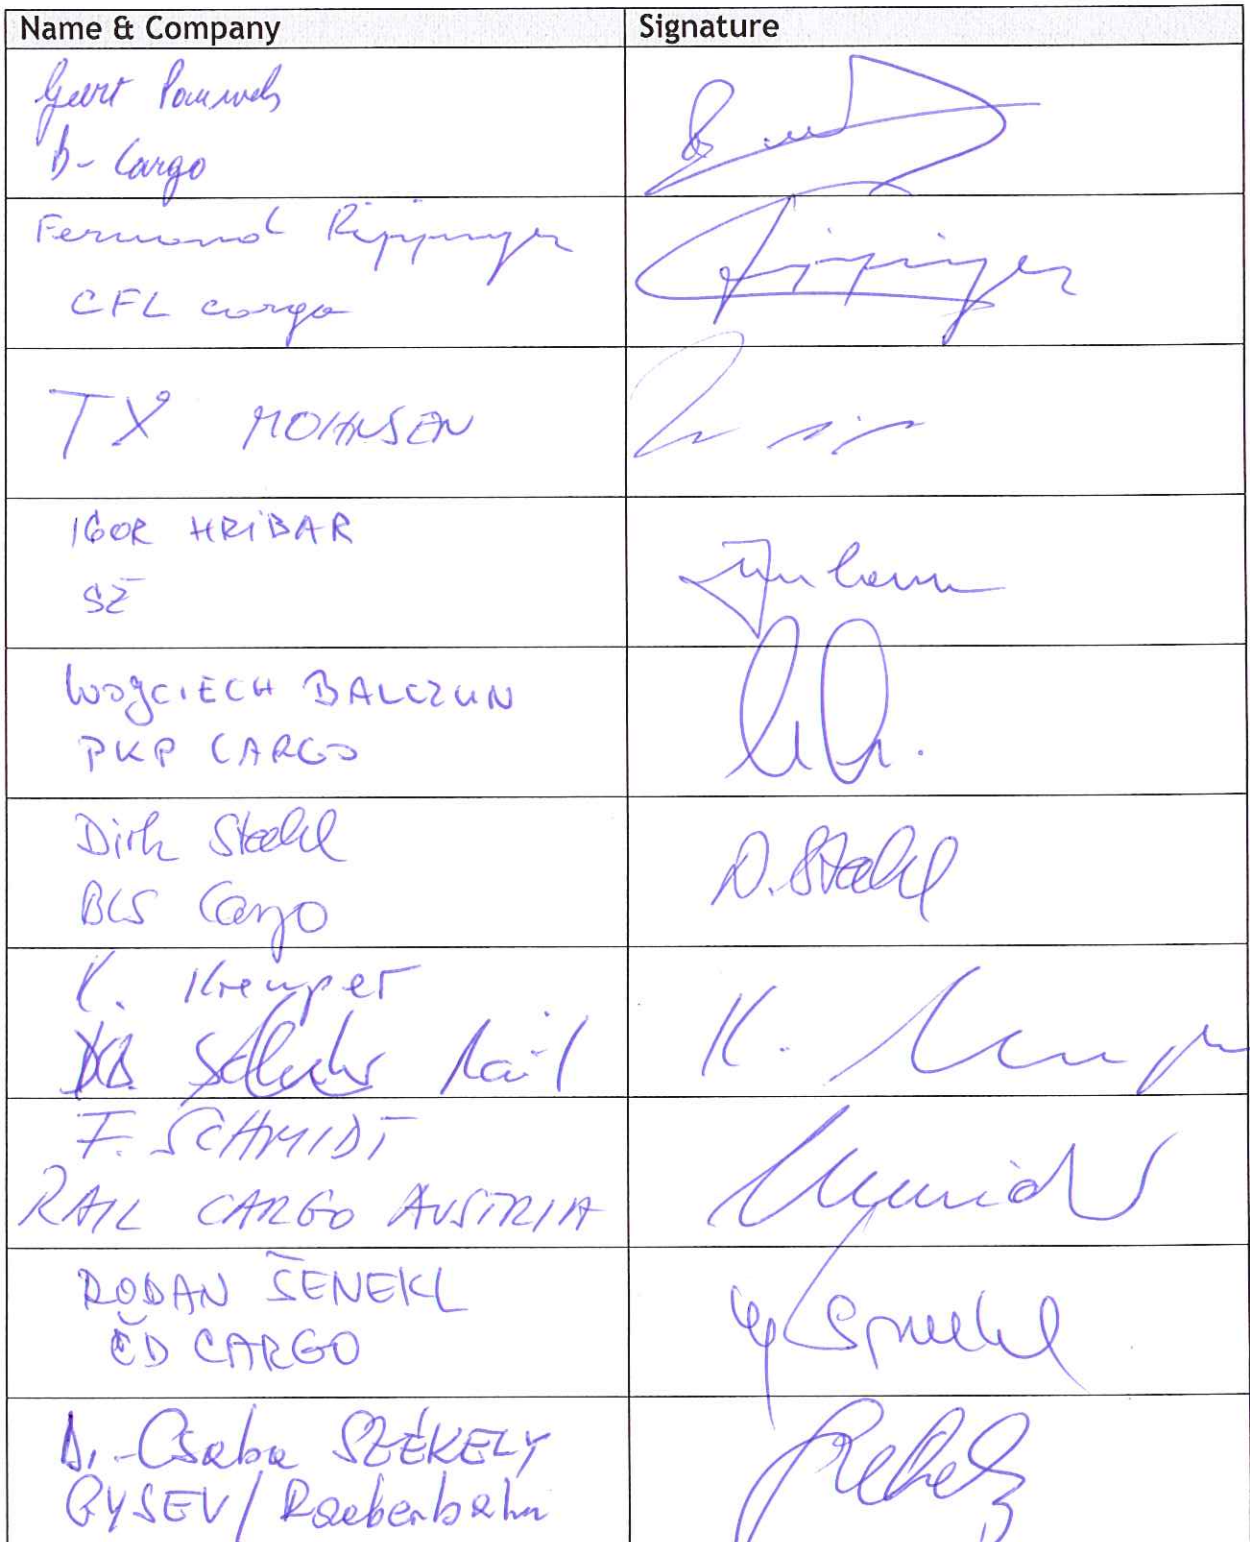 Name & Company
Signature
Geert Pauwels
B-Cargo
Fernand Rippinger
Rippinger
CFL cargo
TX MOHNSEN
IGOR HRIBAR
SŽ
WOJCIECH BALCZUN
PKP CARGO
Dirk Stahl
D. Stahl
BLS Cargo
K. Kremper
K.
DB Schenker Rail
F. SCHMIDT
RAIL CARGO AUSTRIA
RODAN ŠENEKL
ČD CARGO
D. Csaba SZÉKELY
GYSEV/Raeberbahn